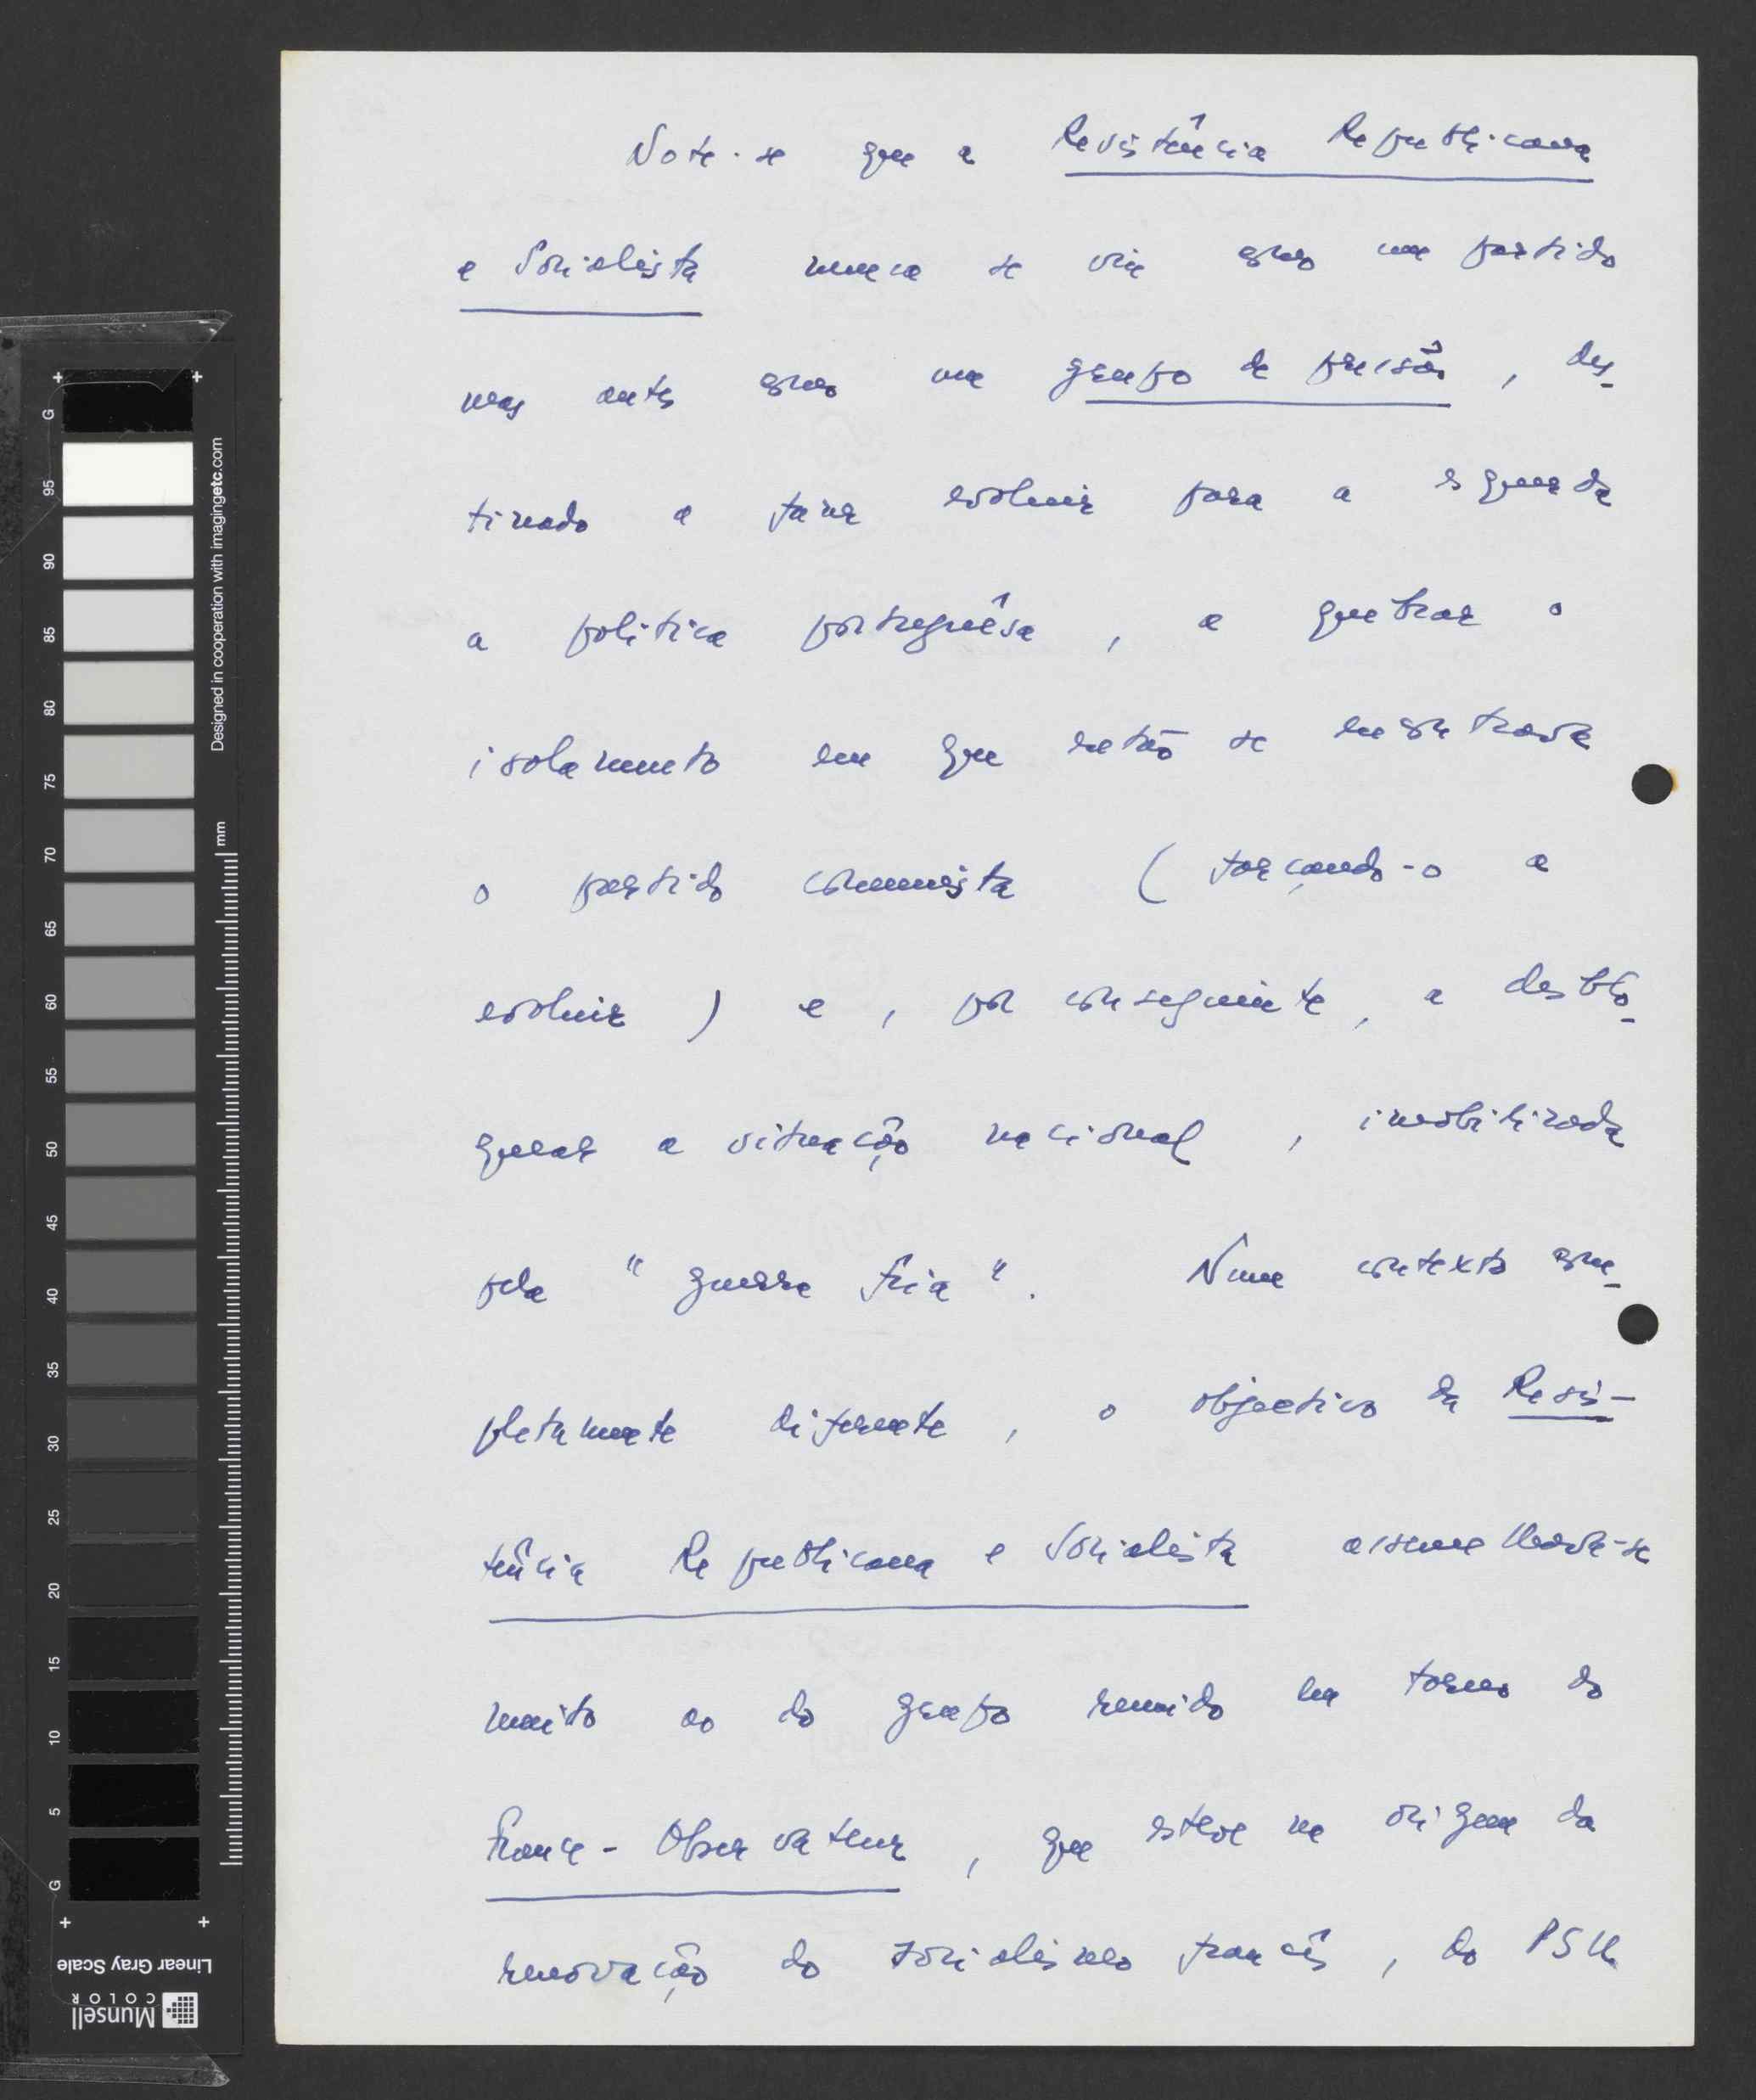 Note-se que a Resistência Republicana
e Socialista nunca se viu como um partido
mas antes como um grupo de pressão, des-
tinado a fazer evoluir para a esquerda
a politica portuguêsa, a quebrar o
isolamento em que então se encontrava
o partido comunista (forçando-o a
evoluir) e, por conseguinte, a desblo-
quear a situação nacional, imobilizada
pela "guerra fria". Num contexto com-
pletamente diferente, o objectivo da Resis-
tência Republicana e Socialista assemelhava-se
muito ao do grupo reunido em torno do
France-Observateur, que esteve na origem da
renovação do socialismo francês, do PSU
G
95
90
85
80
75
70
65
60
55
50
45
40
35
30
25
20
15
10
5
G
mm
Designed in cooperation with imagingetc.com
Linear Gray Scale
Munsell
COLOR